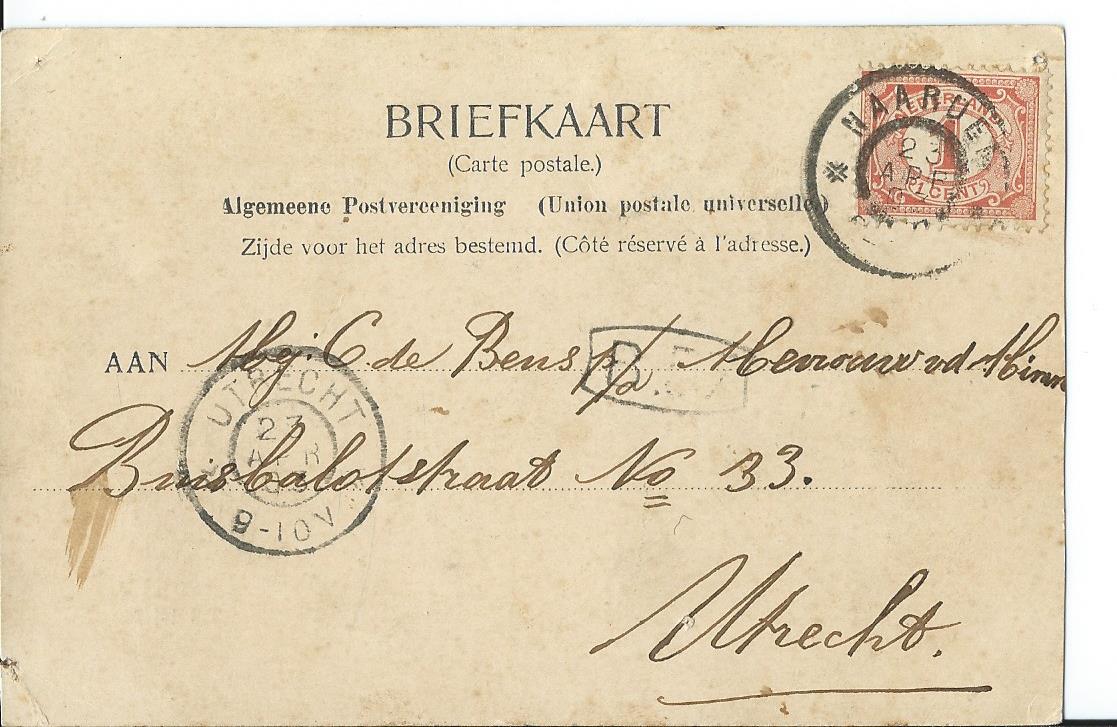 BRIEFKAART
(Carte postale.)
Algemeene Postvereeniging (Union postale universelle)
Zijde voor het adres bestemd. (Côté réservé à l'adresse.)
NEDERLAND
1
1 CENT
NAARDEN
23
APR
AAN Mej. C. de Bens p/a Mevrouw vd Minn
B
Buisbalotstraat No 33.
UTRECHT
23
APR
03
9-10V
Utrecht.